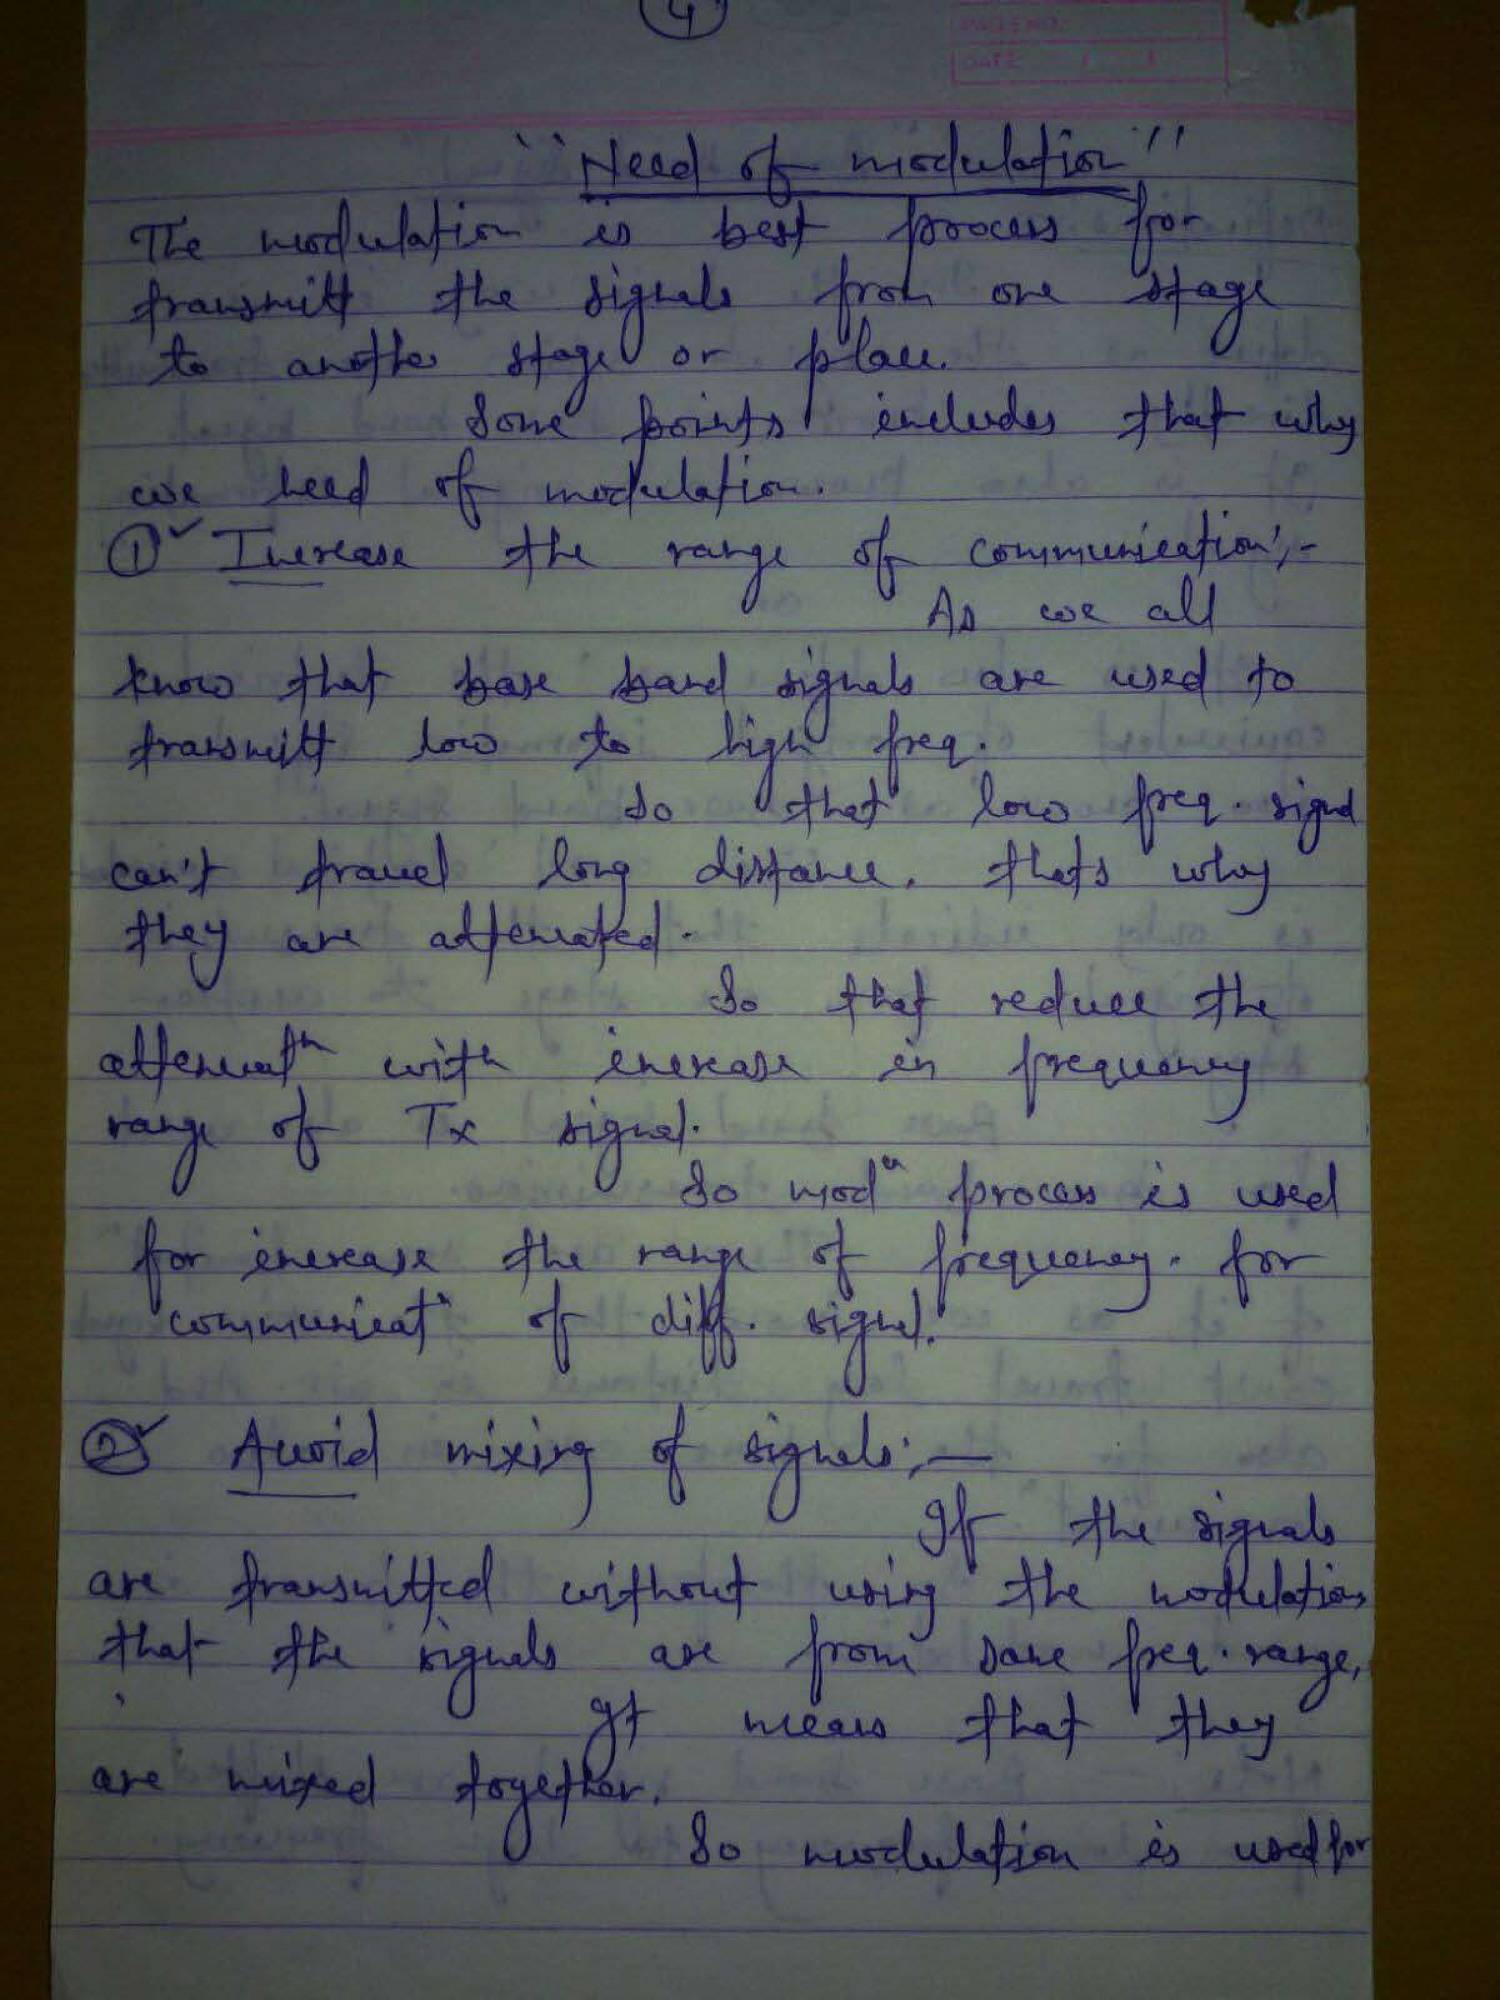 4
PAGE NO.
DATE / /
"Need of modulation"
The modulation is best process for
transmitt the signals from one stage
to another stage or place.
Some points includes that why
we need of modulation.
① Increase the range of communication:-
As we all
know that base band signals are used to
transmitt low to high freq.
so that low freq. signal
can't travel long distance. thats why
they are attenuated.
So that reduce the
attenuatn with increase in frequency
range of Tx signal.
So modn process is used
for increase the range of frequency. for
communicatn of diff. signal.
② Avoid mixing of signals:-
If the signals
are transmitted without using the modulation,
that the signals are from same freq. range,
It means that they
are mixed together.
So modulation is used for